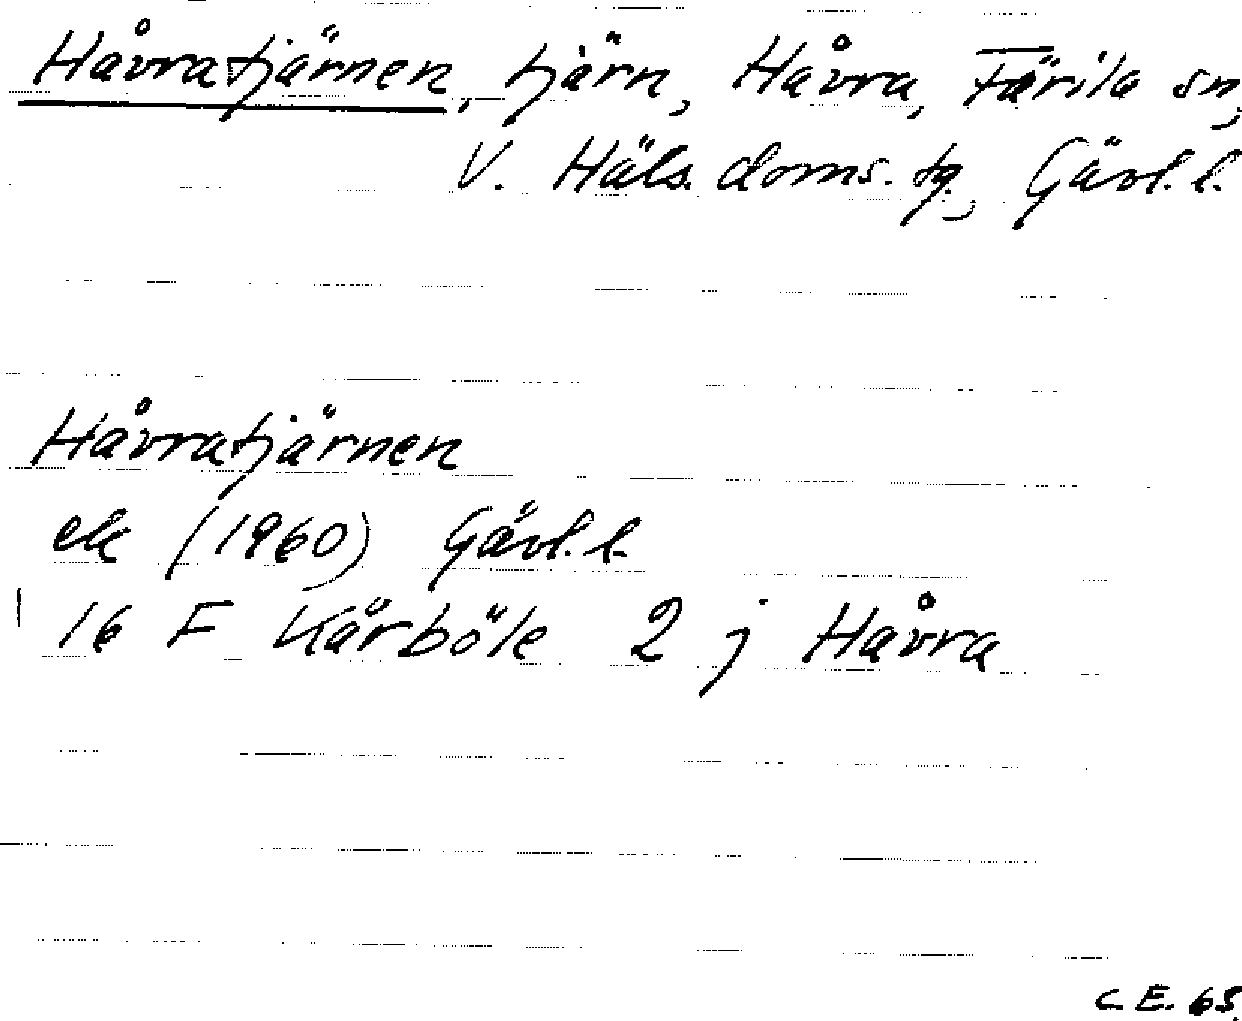 Håvratjärnen, tjärn, Håvra, Färila sn,
V. Häls. doms. tg., Gävl. l.
Håvratjärnen
ek (1960) Gävl. l.
16 F Kårböle 2 j Håvra
C. E. 65.